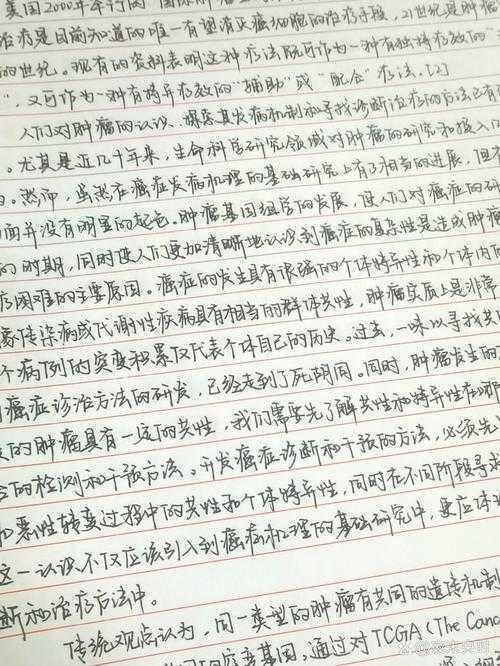 美国2000年举行的
治疗是目前知道的唯一有望消灭癌细胞的治疗手段，21世纪是肿瘤
的世纪。现有的资料表明这种疗法既可作为一种有独特疗效的
"，又可作为一种有特异疗效的"辅助"或"配合"疗法.[2]
人们对肿瘤的认识、探索其发病机制和寻找诊断治疗的方法已有
。尤其是近几十年来，生命科学研究领域对肿瘤的研究和投入
。然而，虽然在癌症发病机理的基础研究上有了相当的进展，但
面并没有明显的起色.肿瘤基因组学的发展，使人们对癌症的研
的时期，同时使人们更加清晰地认识到癌症的复杂性是造成肿瘤
疗困难的主要原因。癌症的发生具有很强的个体特异性和个体内
像传染病或代谢性疾病具有相当的群体共性，肿瘤实质上是非常
个病例的突变积累仅代表个体自己的历史。过去，一味以寻找共
癌症诊治方法的研发，已经走到了死阴同。同时，肿瘤发生的
的肿瘤具有一定的共性，我们需要先了解共性和特异性在哪
合的检测和干预方法。开发癌症诊断和干预的方法，必须先
和恶性转变过程中的共性和个体特异性，同时在不同阶段寻找
这一认识不仅应该引入到癌症机理的基础研究中，更应体
断和治疗方法中。
传统观点认为，同一类型的肿瘤有共同的遗传机制
同的癌变基因。通过对TCGA(The Canc